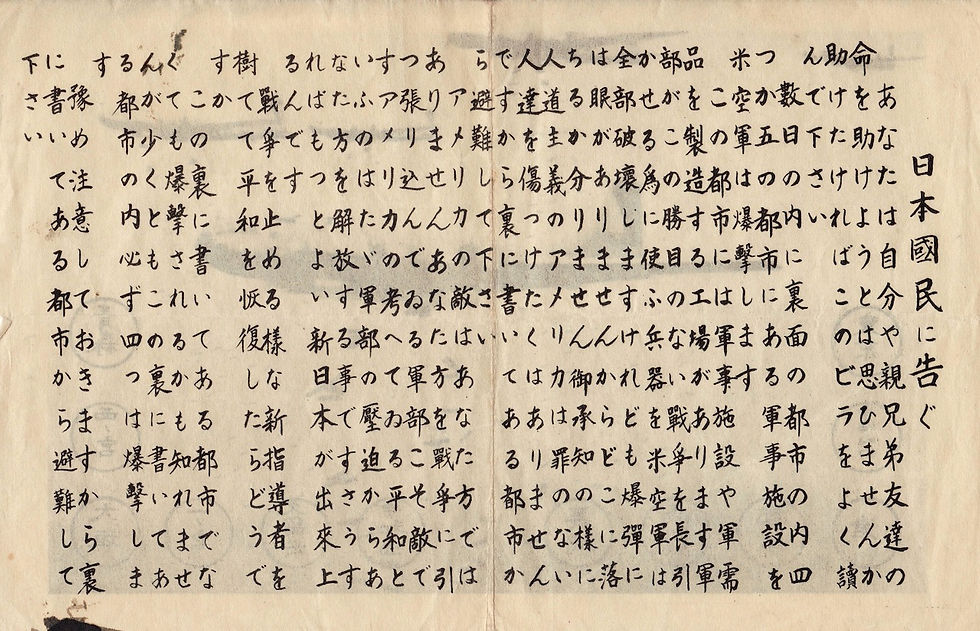 日本國民に告ぐ
あなたは自分や親兄弟友達の
命を助けようとは思ひませんか
助けたければこのビラをよく讀
んで下さい
数日の内に裏面の都市の内四
つか五つの都市にある軍事施設を
米空軍は爆撃します
この都市には軍事施設や軍需
品を製造する工場があります軍
部がこの勝目のない戦争を長引
かせる為に使ふ兵器を米空軍は
全部破壊しますけれども爆彈に
は眼がありませんからどこに落
ちるか分りません御承知の様に
人道主義のアメリカは罪のない
人達を傷つけたくはありません
ですから裏に書いてある都市か
ら避難して下さい
アメリカの敵はあなた方では
ありませんあなた方を戦争に引
つ張り込んでゐる軍部こそ敵で
すアメリカの考へてゐる平和と
いふのはたゞ軍部の壓迫からあ
なた方を解放する事ですさうす
ればもつとよい新日本が出來上
るんです
戦争を止める様な新指導者を
樹てて平和を恢復したらどうで
すか
この裏に書いてある都市でな
くても爆撃されるかも知れませ
んが少くともこの裏に書いてあ
る都市の内必ず四つは爆撃しま
す
豫め注意しておきますから裏
に書いてある都市から避難して
下さい